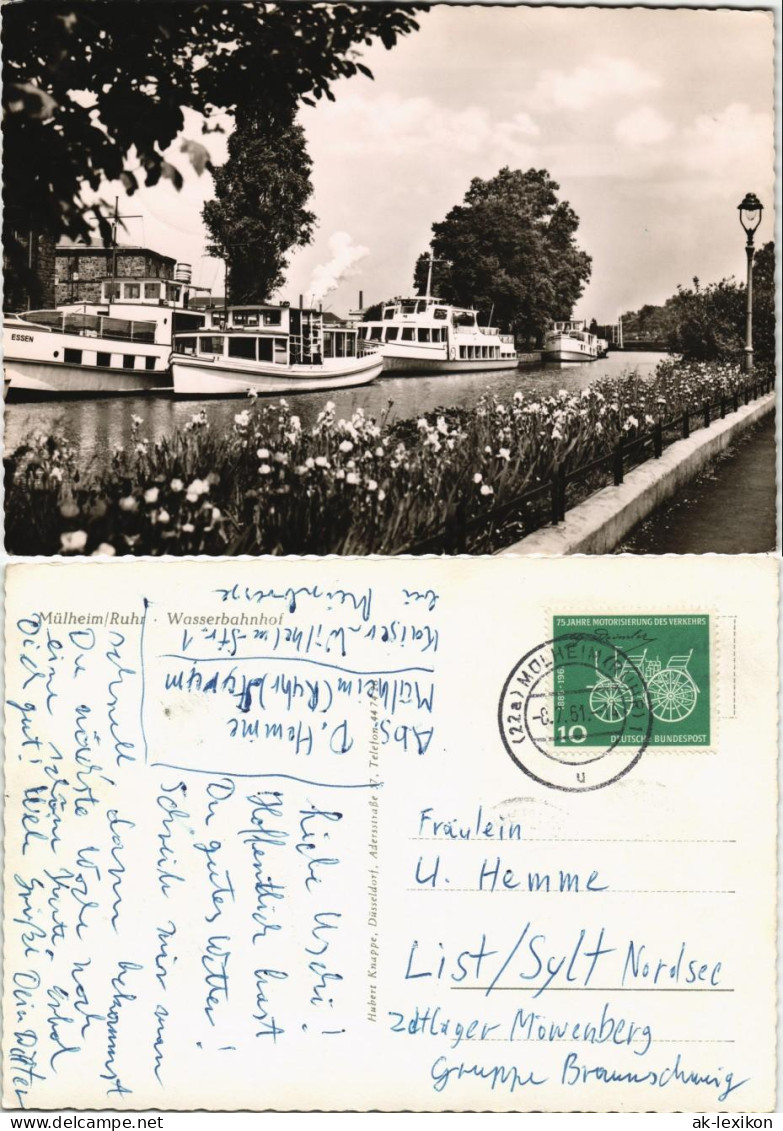 ESSEN
Mülheim/Ruhr · Wasserbahnhof
Abs D. Hemme
Mülheim (Ruhr) Styrum
Kaiser-Wilhelm-Str. 1
bei
Liebe Uschi!
Hoffentlich hast
Du gutes Wetter!
Schreib mir man
schnell dann bekommst
Du nächste Woche noch
eine schöne Karte. Erhol
Dich gut! Viele Grüße Dein
Hubert Knappe, Düsseldorf, Adersstraße 47, Telefon
75 JAHRE MOTORISIERUNG DES VERKEHRS
10
DEUTSCHE BUNDESPOST
(22a) MÜLHEIM (RUHR) 1
-8.7.61.
u
Fräulein
U. Hemme
List/Sylt Nordsee
Zeltlager Möwenberg
Gruppe Braunschweig
www.delcampe.net
ak-lexikon